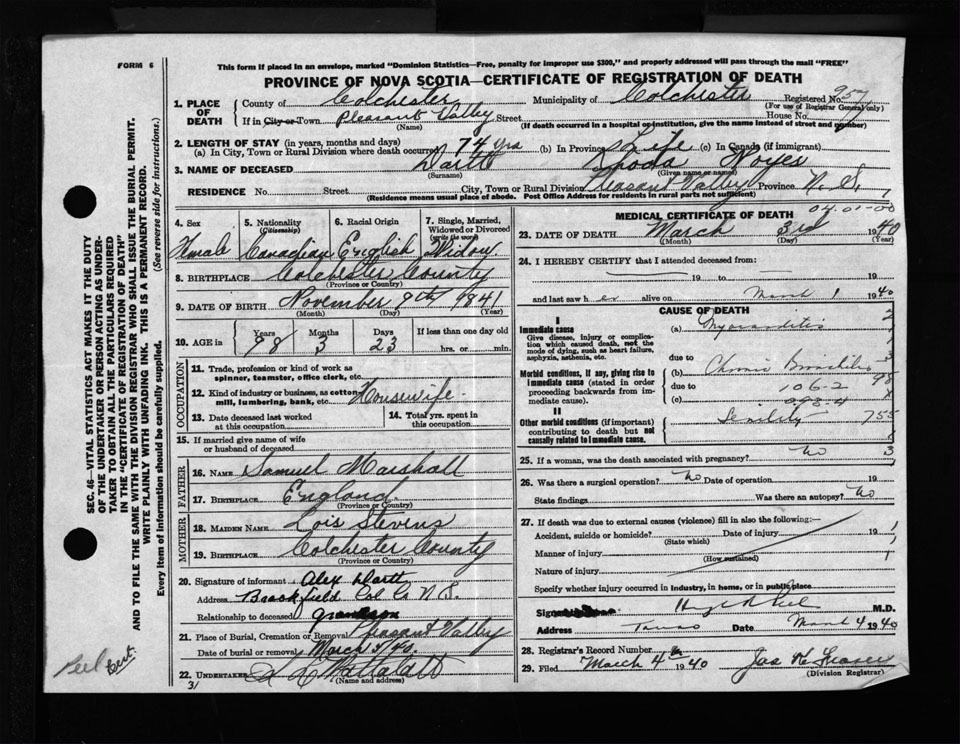 FORM 6
This form if placed in an envelope, marked "Dominion Statistics—Free, penalty for improper use $300," and properly addressed will pass through the mail "FREE"
PROVINCE OF NOVA SCOTIA—CERTIFICATE OF REGISTRATION OF DEATH
1. PLACE OF DEATH
County of Colchester Municipality of Colchester Registered No. 957
(For use of Registrar General only)
If in City or Town Pleasant Valley Street House No.
(Name) (If death occurred in a hospital or institution, give the name instead of street and number)
2. LENGTH OF STAY (in years, months and days)
(a) In City, Town or Rural Division where death occurred 74 yrs (b) In Province Life (c) In Canada (if immigrant)
3. NAME OF DECEASED Dartt Rhoda Noyes
(Surname) (Given name or names)
RESIDENCE No. Street City, Town or Rural Division Pleasant Valley Province N. S.
(Residence means usual place of abode. Post Office Address for residents in rural parts not sufficient)
4. Sex
Female
5. Nationality (Citizenship)
Canadian
6. Racial Origin
English
7. Single, Married, Widowed or Divorced (write the word)
Widow
8. BIRTHPLACE Colchester County
(Province or County)
9. DATE OF BIRTH November 9th 1841
(Month) (Day) (Year)
10. AGE in Years Months Days If less than one day old
98 3 23 hrs. or min.
OCCUPATION
11. Trade, profession or kind of work as spinner, teamster, office clerk, etc.
12. Kind of industry or business, as cotton mill, lumbering, bank, etc. Housewife
13. Date deceased last worked at this occupation
14. Total yrs. spent in this occupation
15. If married give name of wife or husband of deceased
FATHER
16. NAME Samuel Marshall
17. BIRTHPLACE England
(Province or Country)
MOTHER
18. MAIDEN NAME Lois Stevens
19. BIRTHPLACE Colchester County
(Province or Country)
20. Signature of informant Alex Dartt
Address Brookfield Col Co N.S.
Relationship to deceased grandson
21. Place of Burial, Cremation or Removal Pleasant Valley
Date of burial or removal March 5/40
22. UNDERTAKER
(Name and address)
31
MEDICAL CERTIFICATE OF DEATH
04.01-00
23. DATE OF DEATH March 3rd 1940
(Month) (Day) (Year)
24. I HEREBY CERTIFY that I attended deceased from:
19 to 19
and last saw her alive on March 1 1940
CAUSE OF DEATH
I
Immediate cause
Give disease, injury or complication which caused death, not the mode of dying, such as heart failure, asphyxia, asthenia, etc.
(a) Myocarditis
due to
Morbid conditions, if any, giving rise to immediate cause (stated in order proceeding backwards from immediate cause).
(b) Chronic
due to 106-2
(c) 093-4
II
Other morbid conditions (if important) contributing to death but not causally related to immediate cause.
Senility
25. If a woman, was the death associated with pregnancy? No
26. Was there a surgical operation? No Date of operation 19
State findings Was there an autopsy? No
27. If death was due to external causes (violence) fill in also the following:
Accident, suicide or homicide? Date of injury 19
(State which)
Manner of injury
(How sustained)
Nature of injury
Specify whether injury occurred in industry, in home, or in public place
M.D.
Address Truro Date March 4 1940
28. Registrar's Record Number
29. Filed March 4 1940 Jas K Fraser
(Division Registrar)
SEC. 46—VITAL STATISTICS ACT MAKES IT THE DUTY
OF THE UNDERTAKER OR PERSON ACTING AS UNDERTAKER TO OBTAIN ALL THE PARTICULARS REQUIRED
IN THE "CERTIFICATE OF REGISTRATION OF DEATH"
AND TO FILE THE SAME WITH THE DIVISION REGISTRAR WHO SHALL ISSUE THE BURIAL PERMIT.
WRITE PLAINLY WITH UNFADING INK. THIS IS A PERMANENT RECORD.
Every item of information should be carefully supplied. (See reverse side for instructions.)